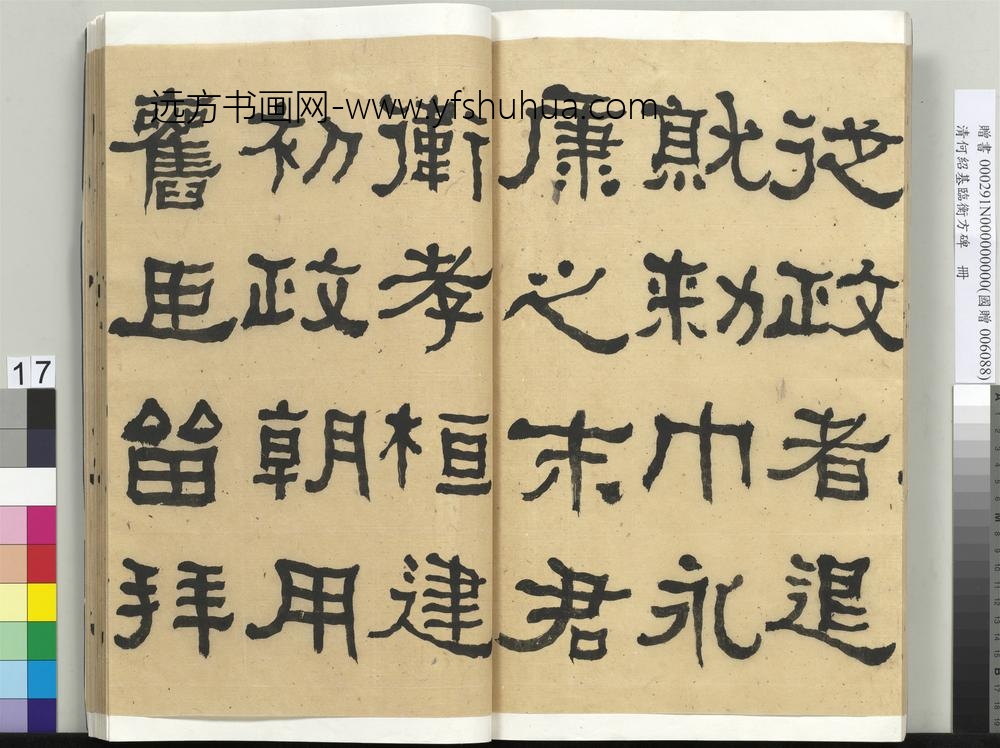 從政者退
就勑巾永
康之末君
衛孝桓建
初政朝用
舊臣留拜
远方书画网-www.yfshuhua.com
贈書 000291N000000000(國贈 006088)
清何紹基臨衡方碑 冊
17